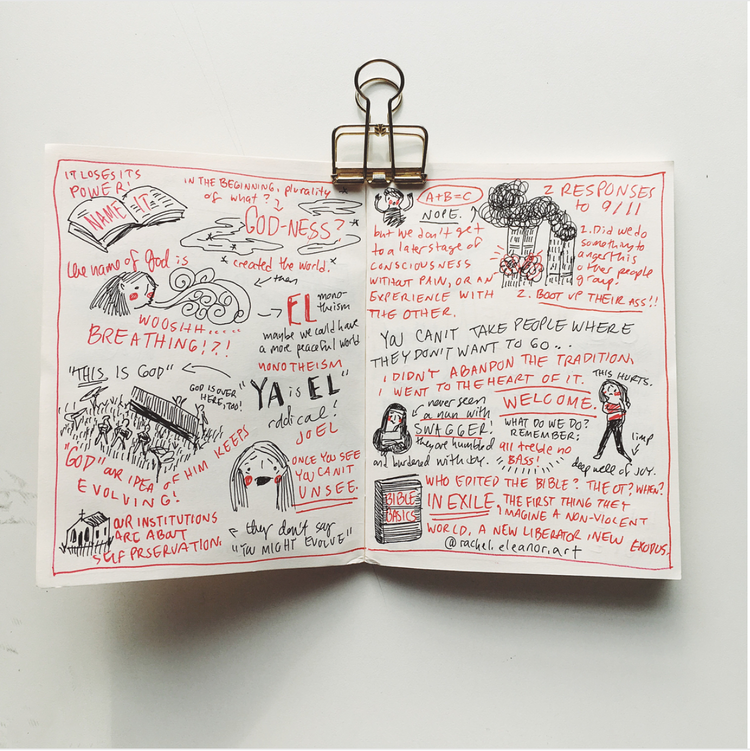 IT LOSES ITS
POWER!
NAME IT.
IN THE BEGINNING, plurality
of what?
GOD-NESS?
created the world.
the name of God is
WOOSHH.....
BREATHING!?!
then
EL mono-
theism
maybe we could have
a more peaceful world
MONOTHEISM
"YA is EL"
radical!
JOEL
"THIS IS GOD"
GOD IS OVER
HERE, TOO!
"GOD" OUR IDEA OF HIM KEEPS
EVOLVING!
ONCE YOU SEE
YOU CAN'T
UNSEE.
OUR INSTITUTIONS
ARE ABOUT
SELF PRSERVATION.
they don't say
"YOU MIGHT EVOLVE"
A+B=C
NOPE.
but we don't get
to a later stage of
CONSCIOUSNESS
WITHOUT PAIN, OR AN
EXPERIENCE WITH
THE OTHER.
2 RESPONSES
to 9/11
1. Did we do
something to
anger this
other people
group?
2. BOOT UP THEIR ASS!!
YOU CAN'T TAKE PEOPLE WHERE
THEY DON'T WANT TO GO...
I DIDN'T ABANDON THE TRADITION,
I WENT TO THE HEART OF IT.
THIS HURTS.
never seen
a nun with
SWAGGER!
they are humbled
and burdened with joy.
WELCOME.
WHAT DO WE DO?
REMEMBER:
all treble no
BASS!
limp
deep well of JOY.
BIBLE
BASICS
WHO EDITED THE BIBLE? THE OT? WHEN?
IN EXILE, THE FIRST THING THEY
IMAGINE A NON-VIOLENT
WORLD, A NEW LIBERATOR, NEW EXODUS.
@rachel.eleanor.art